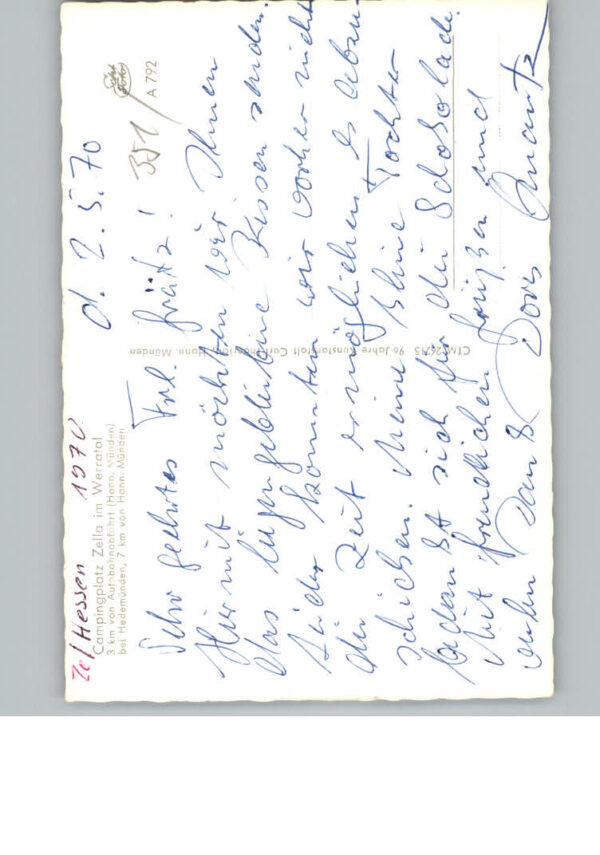 Hessen 1970
Campingplatz Zella im Werratal
3 km von Autobahnabfahrt (Hann. Münden)
bei Hedemünden, 7 km von Hann. Münden
A 792
351/
d. 2.5.70
Sehr geehrtes Frl. Grätz!
Hiermit möchten wir Ihnen
das liegengebliebene Kissen senden.
Leider konnten wir vorher nicht
die Zeit ermöglichen es
schicken. Meine kleine Tochter
bedankt sich für die Schokolade.
Mit freundlichen Grüßen und
vielen Dank Doris
96 Jahre Kunstanstalt Hann. Münden